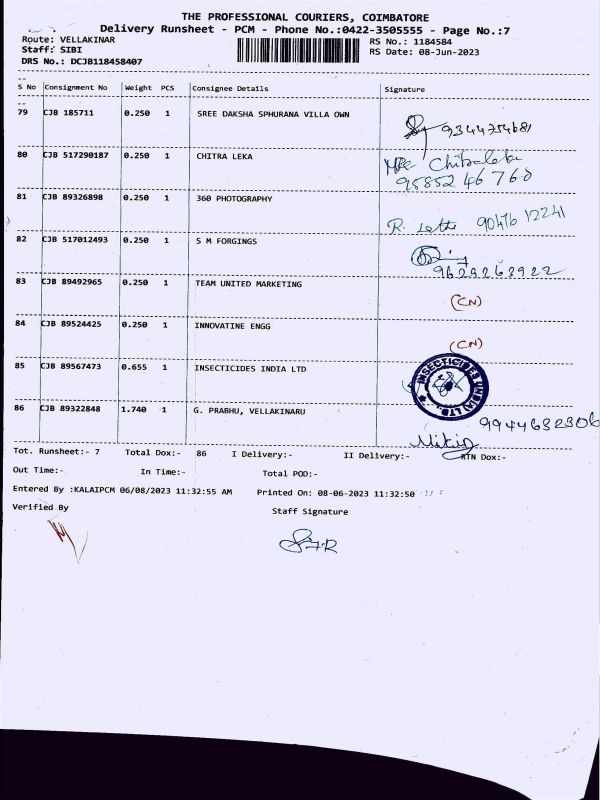 THE PROFESSIONAL COURIERS, COIMBATORE
Delivery Runsheet - PCM - Phone No.:0422-3505555 - Page No.:7
Route: VELLAKINAR RS No.: 1184584
Staff: SIBI RS Date: 08-Jun-2023
DRS No.: DCJB118458407
S No Consignment No Weight PCS Consignee Details Signature
79 CJB 185711 0.250 1 SREE DAKSHA SPHURANA VILLA OWN
9344754681
80 CJB 517290187 0.250 1 CHITRA LEKA
Chitraleka
9585246760
81 CJB 89326898 0.250 1 360 PHOTOGRAPHY
R. 9047612241
82 CJB 517012493 0.250 1 S M FORGINGS
9629262922
83 CJB 89492965 0.250 1 TEAM UNITED MARKETING
(CN)
84 CJB 89524425 0.250 1 INNOVATINE ENGG
(CN)
85 CJB 89567473 0.655 1 INSECTICIDES INDIA LTD
INSECTICIDES (INDIA) LTD.
86 CJB 89322848 1.740 1 G. PRABHU, VELLAKINARU
9944632306
Tot. Runsheet:- 7 Total Dox:- 86 I Delivery:- II Delivery:- RTN Dox:-
Out Time:- In Time:- Total POD:-
Entered By :KALAIPCM 06/08/2023 11:32:55 AM Printed On: 08-06-2023 11:32:50
Verified By Staff Signature